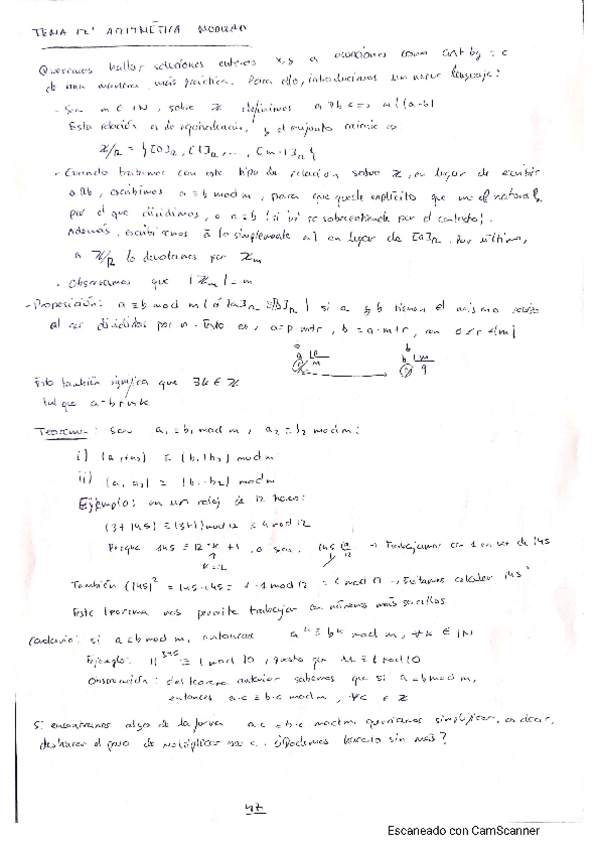 TEMA 12: ARITMÉTICA MODULAR
Queremos hallar soluciones enteras x, y a ecuaciones como ax+by=c
de una manera más práctica. Para ello, introducimos un nuevo lenguaje:
- Sea m ∈ IN, sobre Z definimos a R b <=> m|(a-b)
Esta relación es de equivalencia, y el conjunto cociente es
Z/R = {[0]R, [1]R, ..., [m-1]R}
- Cuando tratemos con este tipo de relación sobre Z, en lugar de escribir
aRb, escribimos a ≡ b mod m, para que quede explícito que m es el natural
por el que dividimos, o a ≡ b (si se sobreentiende por el contexto).
Además, escribiremos a lo simplemente en lugar de [a]R. Por último,
a Z/R lo denotamos por Zm
- Observamos que |Zm| = m
- Proposición: a ≡ b mod m (ó [a]R = [b]R) si a y b tienen el mismo resto
al ser divididos por m. Esto es, a = p·m+r, b = q·m+r, con 0 ≤ r < |m|
Esto también significa que ∃k ∈ Z
tal que a = b + mk
Teorema: sean a₁ ≡ b₁ mod m, a₂ ≡ b₂ mod m:
i) (a₁+a₂) ≡ (b₁+b₂) mod m
ii) (a₁·a₂) ≡ (b₁·b₂) mod m
Ejemplo: en un reloj de 12 horas:
(3+145) ≡ (3+1) mod 12 ≡ 4 mod 12
Porque 145 = 12·k + 1, o sea, 145 |12 → Trabajamos con 1 en vez de 145
k=12
También (145)² = 145·145 ≡ 1·1 mod 12 ≡ 1 mod 12 → Evitamos calcular 145²
Este teorema nos permite trabajar con números más sencillos
Corolario: si a ≡ b mod m, entonces aᵏ ≡ bᵏ mod m, ∀k ∈ IN
Ejemplo: 11³⁴⁵ ≡ 1 mod 10, puesto que 11 ≡ 1 mod 10
Observación: del teorema anterior sabemos que si a ≡ b mod m,
entonces a·c ≡ b·c mod m, ∀c ∈ Z
Si encontramos algo de la forma a·c ≡ b·c mod m querríamos simplificar, es decir,
deshacer el paso de multiplicar por c. ¿Podemos hacerlo sin más?
47
Escaneado con CamScanner